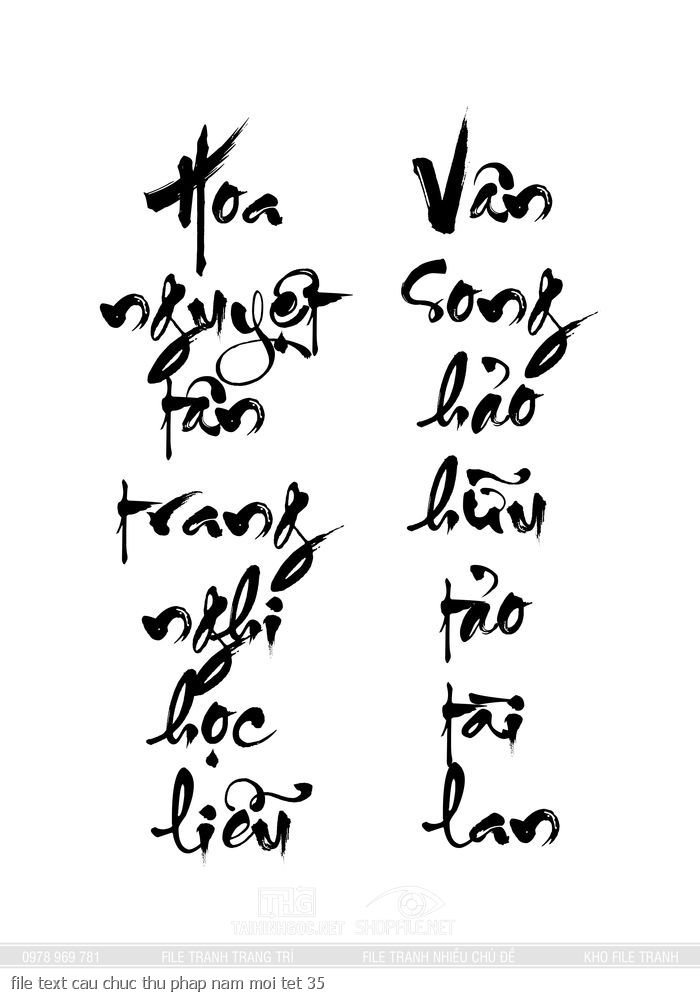 Hoa
nguyệt
tân
trang
nghi
học
liễu
Vân
Song
hảo
hữu
tảo
tài
lan
THG
TAIHINHGOC.NET
SHOPFILE.NET
0978 969 781
FILE TRANH TRANG TRÍ
FILE TRANH NHIỀU CHỦ ĐỀ
KHO FILE TRANH
file text cau chuc thu phap nam moi tet 35